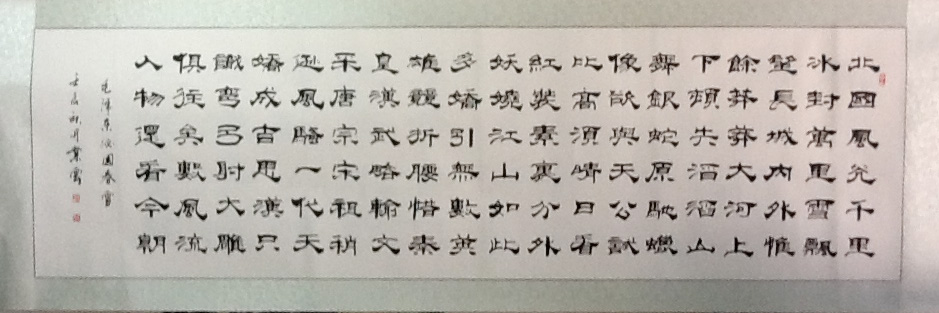 北國風光千里
冰封萬里雪飄
望長城內外惟
餘莽莽大河上
下頓失滔滔山
舞銀蛇原馳蠟
像欲與天公試
比高須晴日看
紅裝素裹分外
妖嬈江山如此
多嬌引無數英
雄競折腰惜秦
皇漢武略輸文
采唐宗宋祖稍
遜風騷一代天
嬌成吉思漢只
識彎弓射大雕
俱往矣數風流
人物還看今朝
毛澤東沁園春雪
壬辰秋月